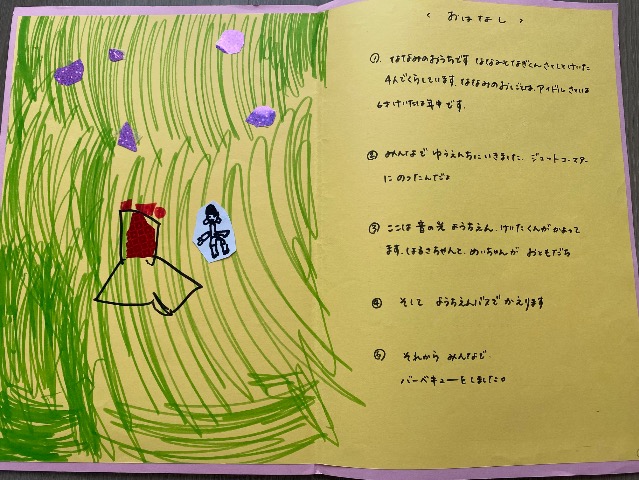 ( おはなし )
① ななみのおうちです ななみとなぎくん さとしとけいた
4人でくらしています。ななみのおしごとは、アイドル さとしは
6さい けいたは年中です。
② みんなで ゆうえんちにいきました。ジェットコースター
に のったんだよ
③ ここは 音の光 ようちえん。けいたくんがかよって
ます。はるきちゃんと、めいちゃんが おともだち
④ そして ようちえんバスで かえります
⑤ それから みんなで
バーベキューをしました。